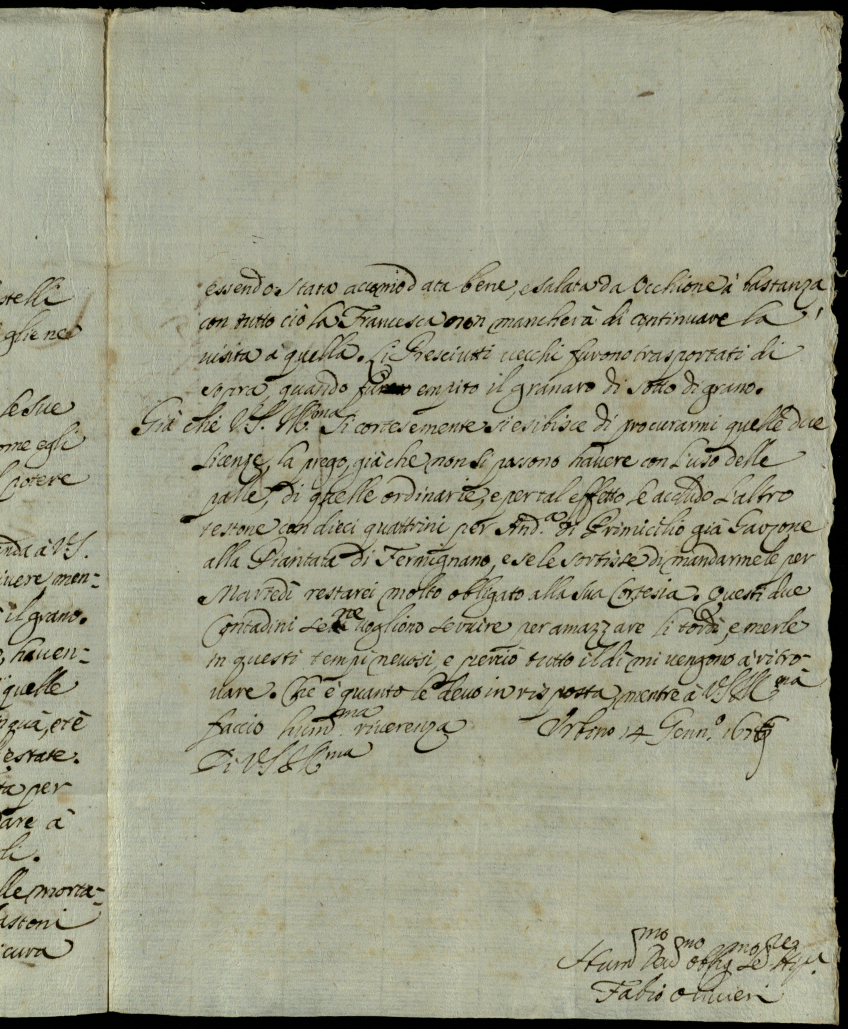 stelli
glie ne
le sue
ome egli
potere
anda à V.S.
ivere men=
il grano.
haven=
quelle
nquà, et è
estate.
ta per
are à
li.
lle morta=
astoni
icura
essendo stata accomodata bene, e salata da Occhione à bastanza
con tutto ciò la Francesca non mancherà di continuare la
visita a quella. Li Presciutti vecchi furono trasportati di
sopra, quando fù empito il granaro di sotto di grano.
Già che V.S. Ill.ma si cortesemente si esibisce di procurarmi quelle due
licenze, la prego, già che non si possono havere con l'uso delle
palle, di quelle ordinarie, e per tal effetto le accludo l'altro
testone con dieci quattrini per And.a di Primicilio già Garzone
alla Piantata di Fermignano, e se le sortisse di mandarmele per
Martedì restarei molto obligato alla sua Cortesia. Questi due
Contadini se ne vogliono servire per amazzare li tordi, e merle
in questi tempi nevosi, e perciò tutto il dì mi vengono à ritro-
vare. Che è quanto le devo in risposta, mentre à V.S. Ill.ma
faccio hum.ma riverenza Urbino 14 Genn.o
Di V.S. Ill.ma
Hum.mo Dev.mo Obblig.mo Se.re
Fabio Olivieri